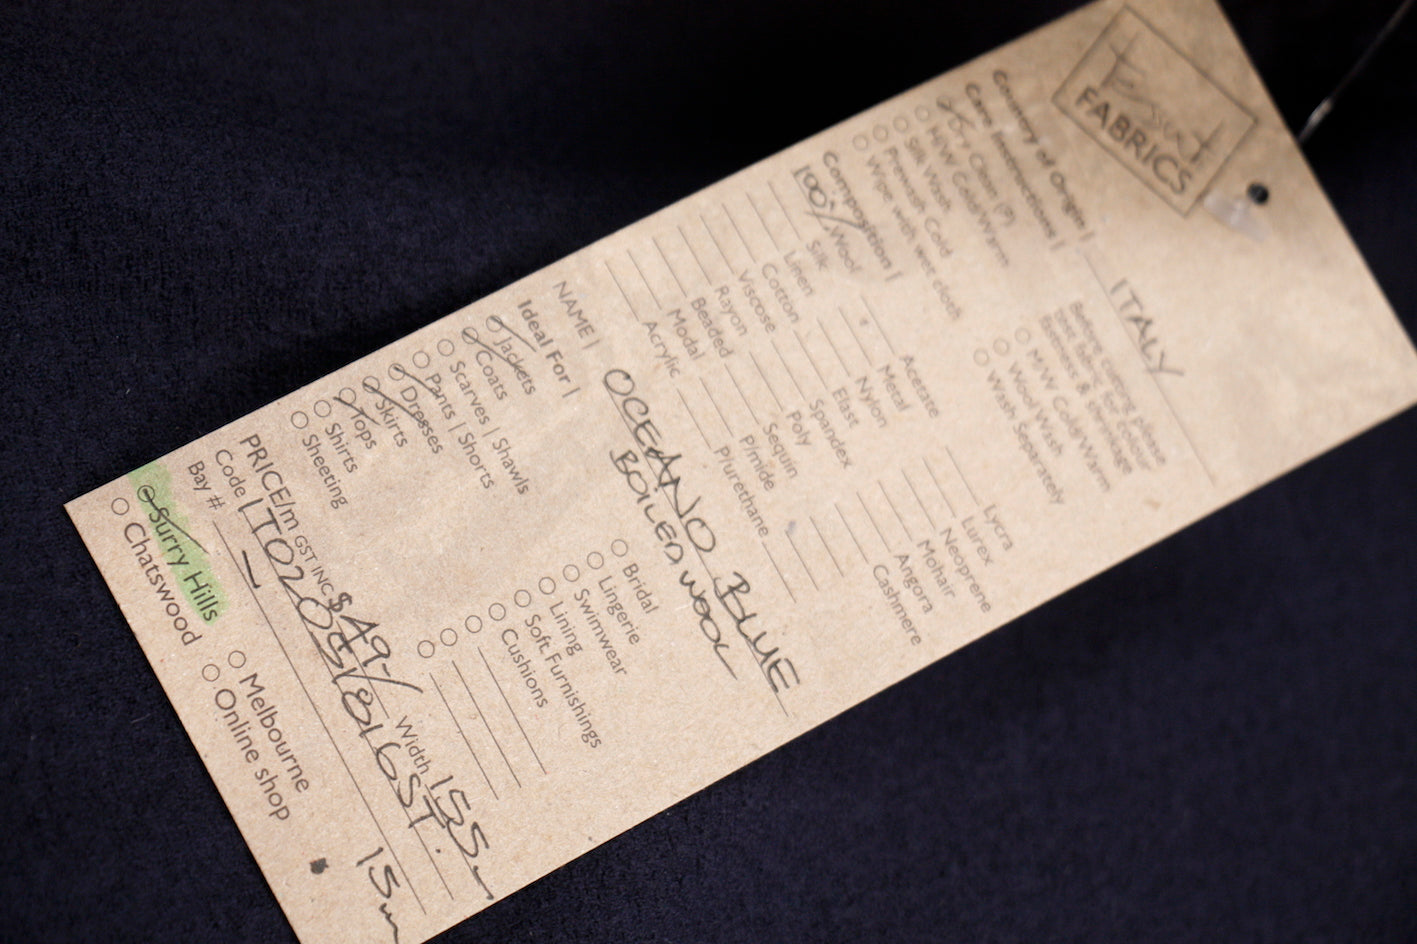 Tessuti
FABRICS
Country of Origin | ITALY
Care Instructions |
Dry Clean (P)
H/W Cold/Warm
Silk Wash
Prewash Cold
Wipe with wet cloth
Before cutting please
test fabric for colour
fastness & shrinkage
M/W Cold/Warm
Wool Wash
Wash Separately
Composition |
100% Wool
Silk
Linen
Cotton
Viscose
Rayon
Beaded
Modal
Acrylic
Acetate
Metal
Nylon
Elast
Spandex
Poly
Sequin
P/mide
P/urethane
Lycra
Lurex
Neoprene
Mohair
Angora
Cashmere
NAME | OCEANO BLUE
BOILED WOOL
Ideal For |
Jackets
Coats
Scarves | Shawls
Pants | Shorts
Dresses
Skirts
Tops
Shirts
Sheeting
Bridal
Lingerie
Swimwear
Lining
Soft Furnishings
Cushions
PRICE/m GST INC $49/ Width 155m
Code |
Bay #
15m
Surry Hills
Chatswood
Melbourne
Online shop